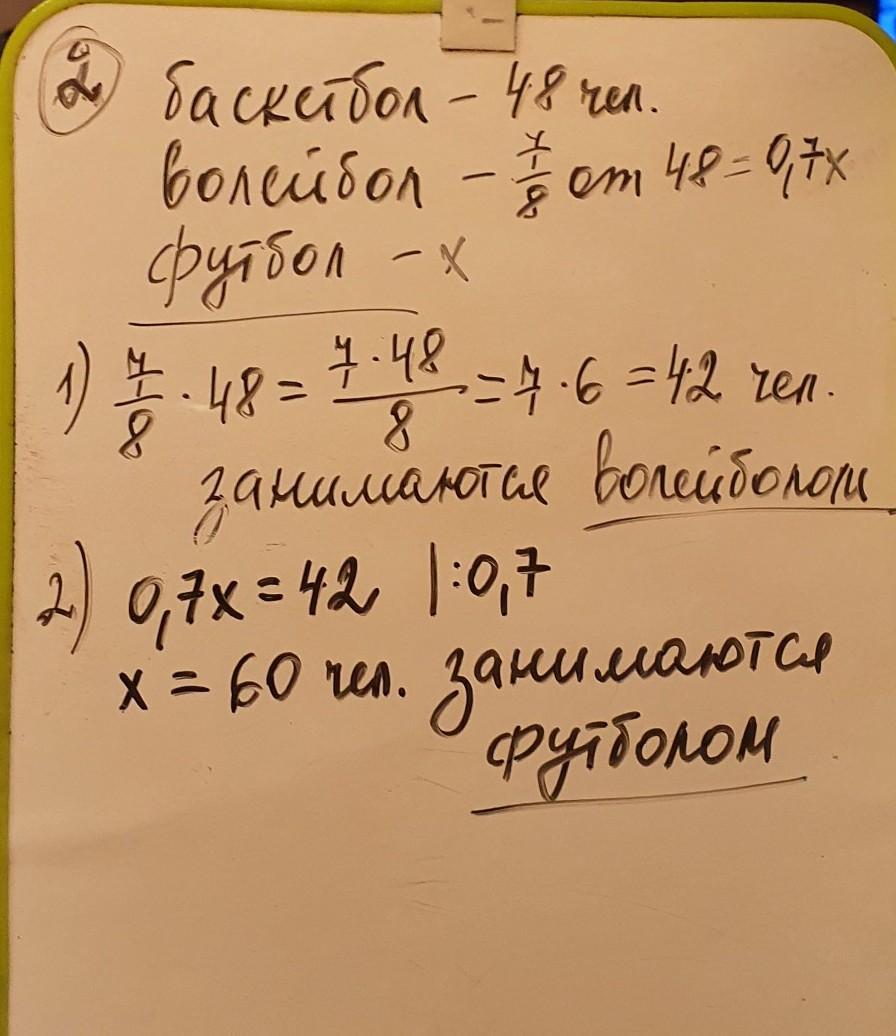 2
баскетбол – 48 чел.
волейбол – 7/8 от 48 = 0,7x
футбол – x
1) 7/8 · 48 = 7 · 48/8 = 7 · 6 = 42 чел.
занимаются волейболом
2) 0,7x = 42 |:0,7
x = 60 чел. занимаются
футболом